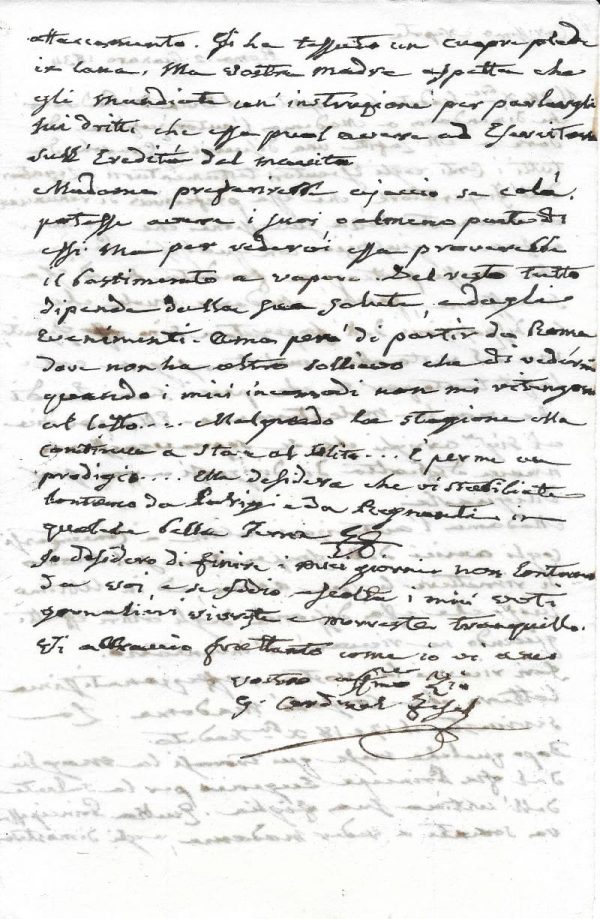 attaccamento. Gli ha tessuto un cuopre piede
in lana, Ma vostra madre aspetta che
gli mandiate un' instruzione per parlargli
sui dritti che essa puol avere ad Esercitare
sull' Eredità del marito
Madama preferirebbe Ajaccio se colà
potesse avere i suoi o almeno parte di
essi Ma per vedervi essa proverebbe
il bastimento a vapore. Del resto tutto
dipende dalla sua salute, e dagli
Evenimenti. Ama però di partir da Roma
dove non ha altro sollievo che di vedermi
quando i miei incomodi non mi ritengono
al letto... Malgrado la stagione Ella
continua a star al solito... È per me un
prodigio.... Ella desidera che vi stabiliate
lontano da e da Regnanti in
qualche bella Terra
Io desidero di finire i miei giorni non lontano
da voi e se Iddio ascolta i miei voti
giornalieri vivrete e morrete tranquillo.
Vi abbraccio frattanto come io vi amo
vostro affmo Zio
G. Cardinal Fesch